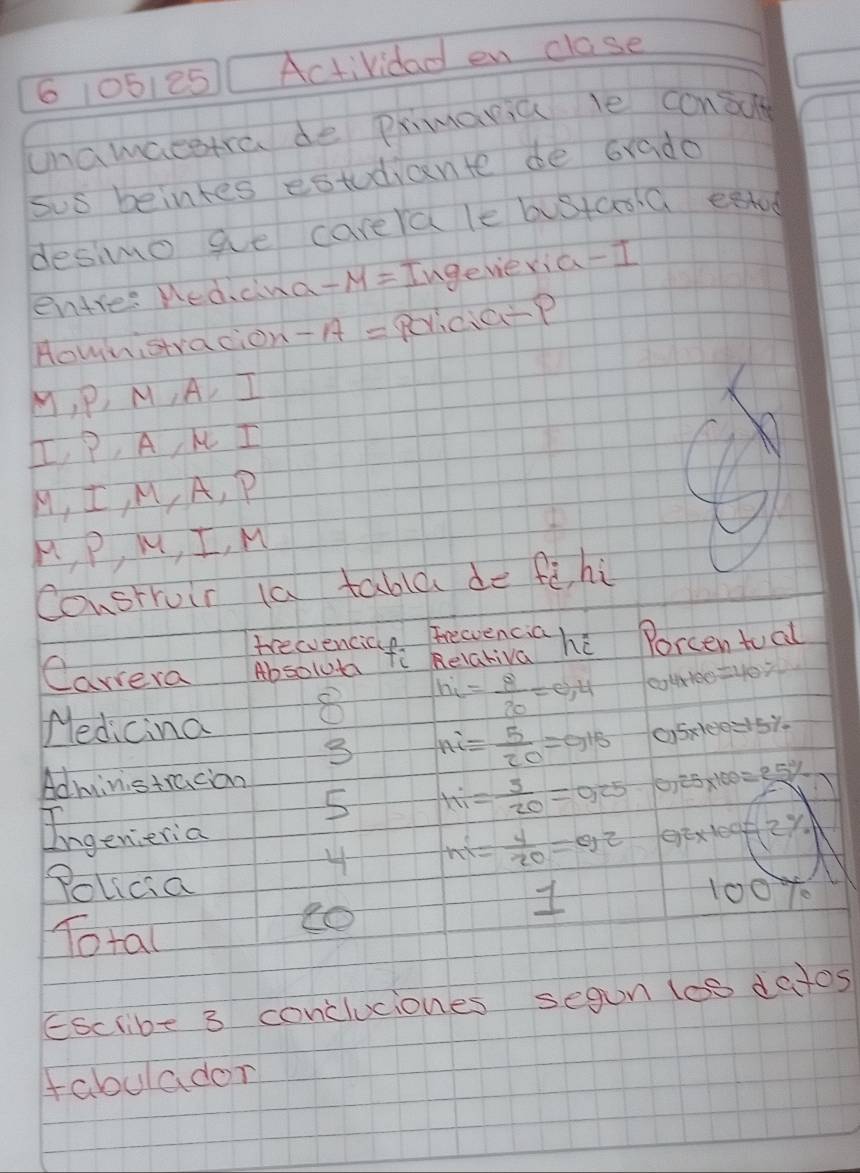 6 05 25 Actividad en clase
unamaestra de Primaria le consult
sus beintes estudiante de Grado
desimo que carera le bustaria estud
entre: Medicina-M = Ingenieria-I
Administracion-A = Policia-P
M, P, M, A, I
I, P, A, M I
M, I, M, A, P
M, P, M, I, M
Construir la tabla de fi, hi
Carrera Frecuencia Absoluta fi Frecuencia Relativa hi Porcentual
Medicina 8 hi = 8/20 = 0,4 0,4x100=40%
Administracion 3 hi = 5/20 = 0,15 0,5x100=15%
Ingenieria 5 hi = 5/20 = 0,25 0,25x100=25%
Policia 4 hi = 4/20 = 0,2 0,2x100=2%
Total 20 1 100%
Escribe 3 concluciones segun los datos
tabulador